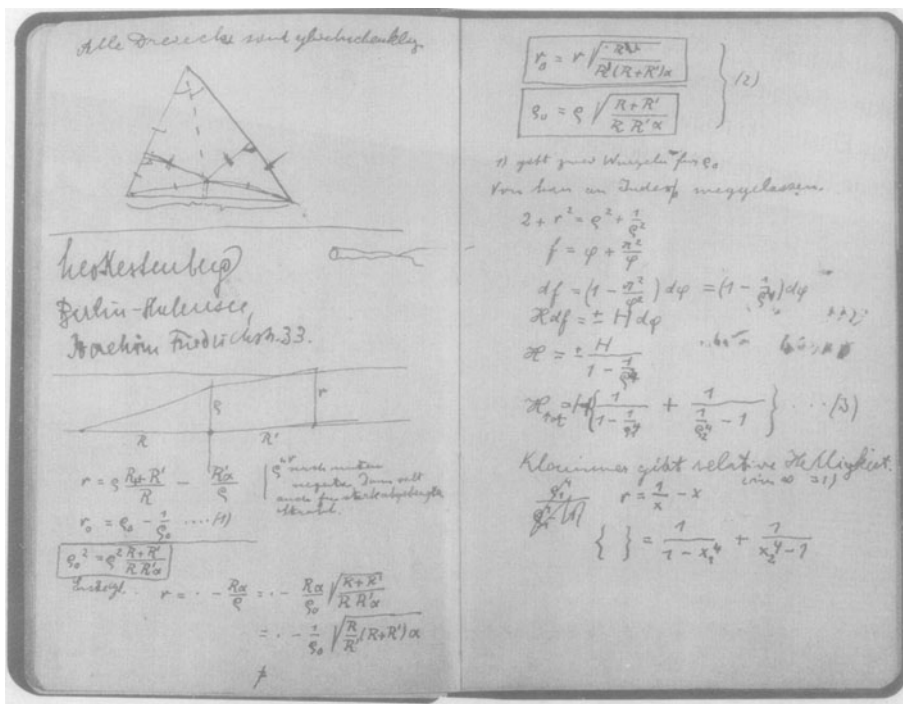 Alle Dreiecke sind gleichschenklig
Leo Kestenberg
Berlin-Halensee,
Joachim Friedrichstr. 33.
ρ
r
R
R'
r = ρ (R + R')/R − R'α/ρ
r₀ = ρ₀ − 1/ρ₀ .... (1)
ρ nach unten
negativ. Dann
auch für stark abgelenkte
ρ₀² = ρ² (R + R')/(R R'α)
r = · − Rα/ρ = · − Rα/ρ₀ √((R + R')/(R R'α))
= · − 1/ρ₀ √(R/R' (R + R')α)
r₀ = r √(R/(R'(R + R')α))
ρ₀ = ρ √((R + R')/(R R'α))
} (2)
1) gibt zwei Wurzeln für ρ₀
Von hier an Index weggelassen.
2 + r² = ρ² + 1/ρ²
f = φ + π²/φ
df = (1 − π²/φ²) dφ = (1 − 1/ρ⁴) dφ
H df = ± H dφ
H = ± H/(1 − 1/ρ⁴)
H tot = H { 1/(1 − 1/ρ₁⁴) + 1/(1/ρ₂⁴ − 1) } .... (3)
Klammer gibt relative Helligkeit.
(im ∞ = 1)
r = 1/x − x
{ } = 1/(1 − x₁⁴) + 1/(x₂⁴ − 1)